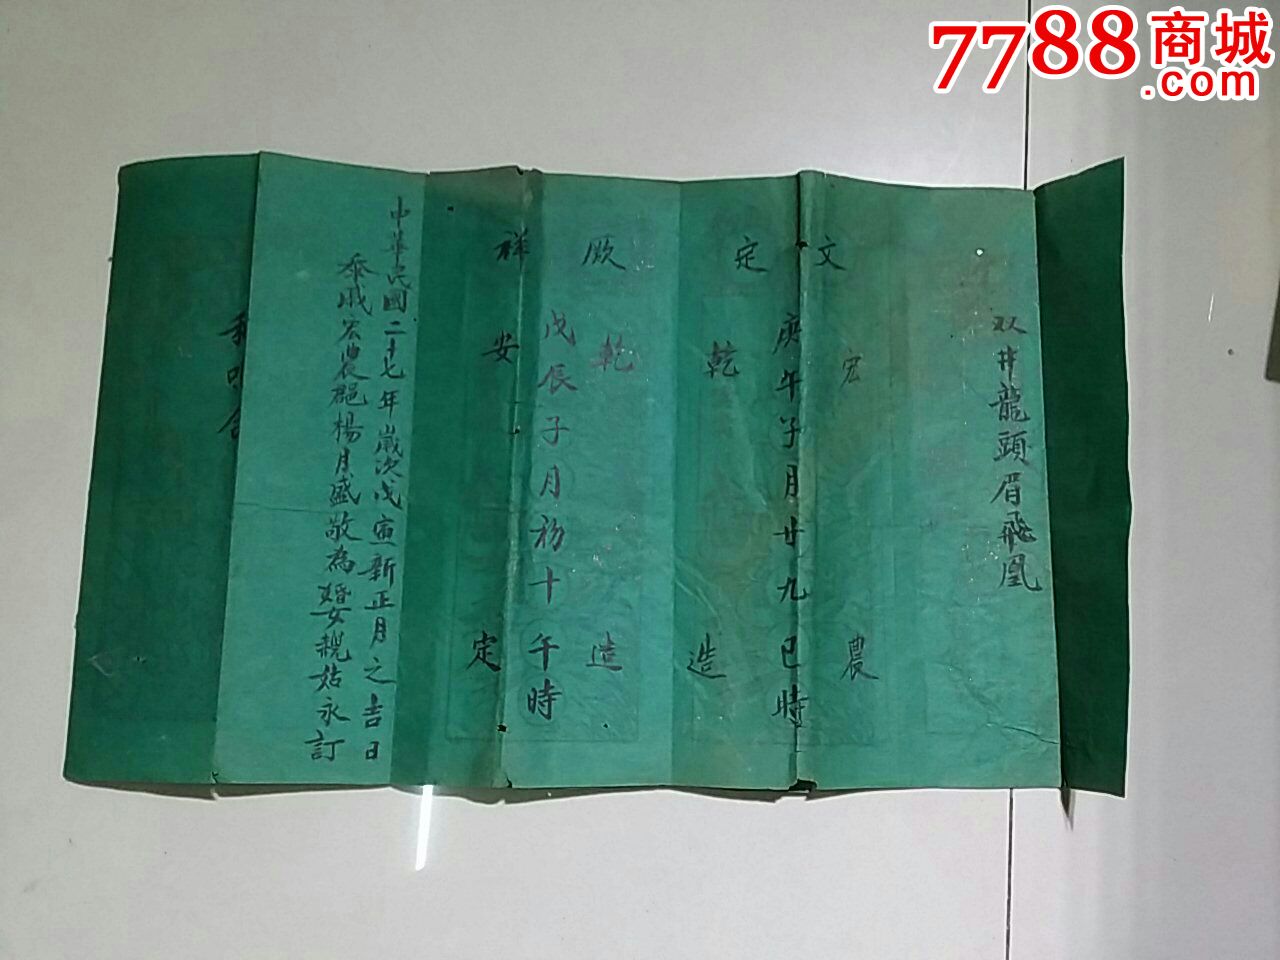 7788商城
.com
双井龍頭眉飛凰
文定厥祥
宏農
庚午子月廿九巳時
乾造
乾造
戊辰子月初十午時
安定
中華民國二十七年歲次戊寅新正月之吉日
忝戚宏農郡楊月盛敬為婚女親姑永訂